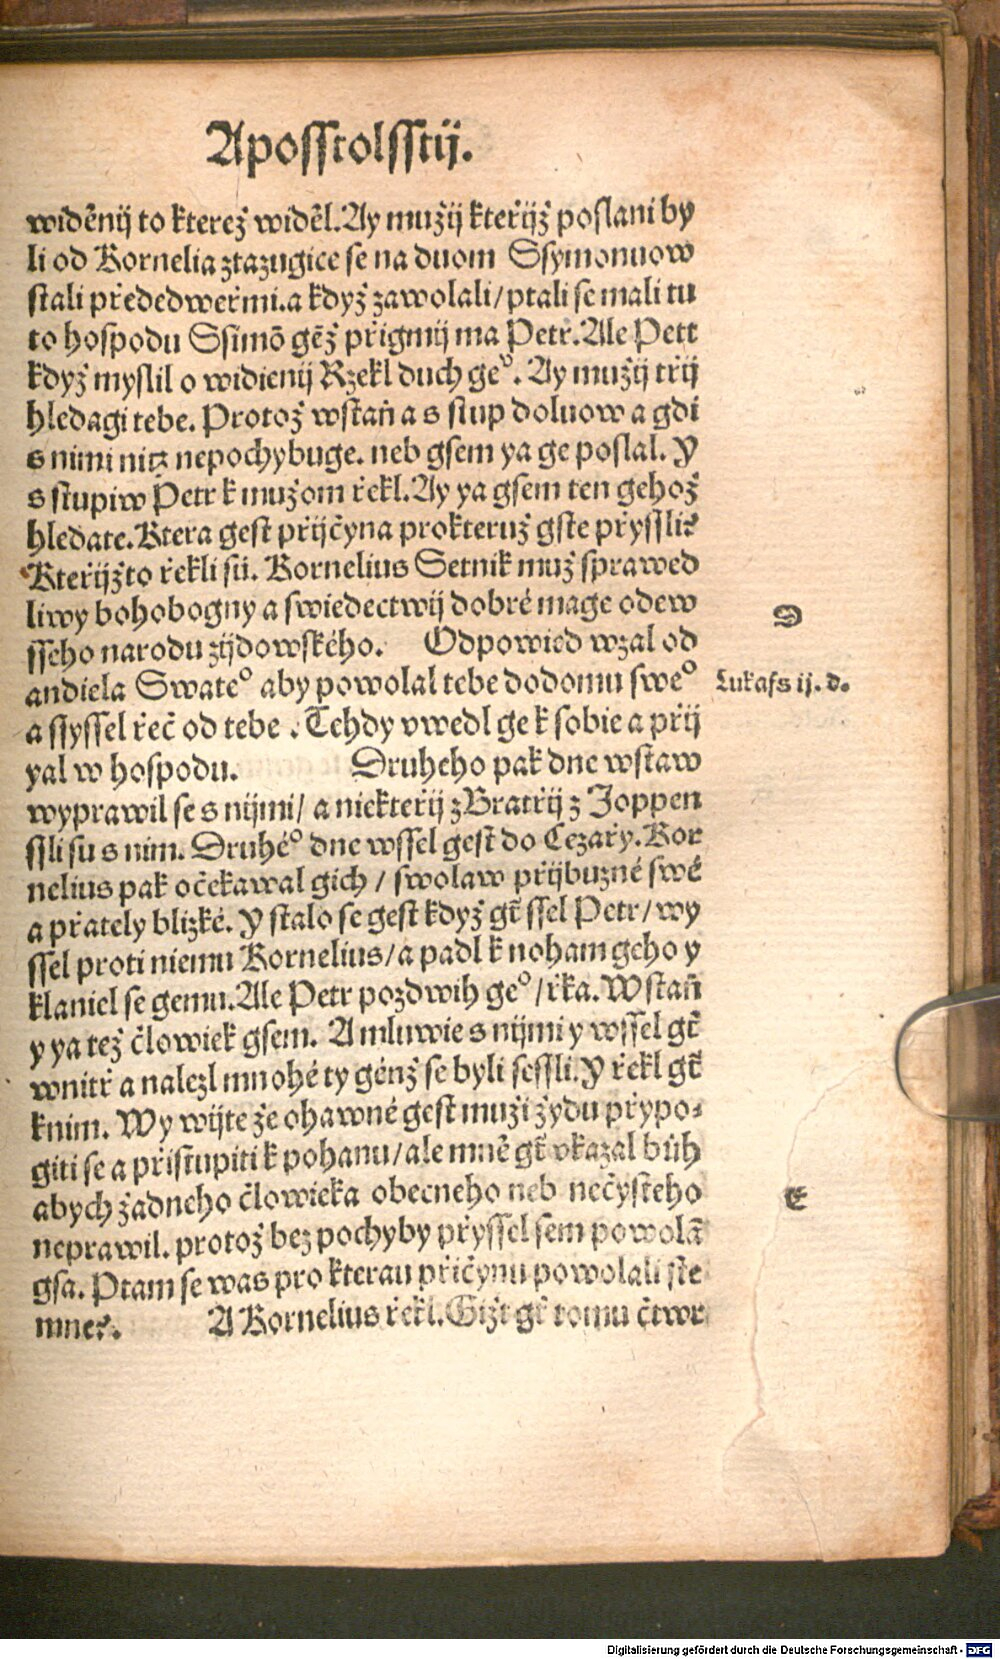 Aposstolsstij.
widěnij to kterež widěl. Ay mužij kteřijž poslani by
li od Kornelia ztazugice se na duom Ssymonuow
stali přededweřmi. a když zawolali / ptali se mali tu
to hospodu Ssimō gēž přigmij ma Petř. Ale Pett
když myslil o widienij Rzekl duch geº. Ay mužij třij
hledagi tebe. Protož wstaň a s stup doluow a gdi
s nimi nitz nepochybuge. neb gsem ya ge poslal. Y
s stupiw Petr k mužom řekl. Ay ya gsem ten gehož
hledate. Ktera gest přijčyna prokteruž gste přyssli?
Kteřijžto řekli sú. Kornelius Setnik muž sprawed
liwy bohobogny a swiedectwij dobré mage odew
sseho narodu zijdowského. Odpowied wzal od
andiela Swateº aby powolal tebe dodomu sweº
a slyssel řeč od tebe. Tehdy vwedl ge k sobie a přij
yal w hospodu. Druheho pak dne wstaw
wyprawil se s nijmi / a niekteřij z Bratřij z Joppen
ssli su s nim. Druhéº dne wssel gest do Cezařy. Kor
nelius pak očekawal gich / swolaw přijbuzné swé
a přately blizké. Y stalo se gest když gt̄ ssel Petr / wy
ssel proti niemu Kornelius / a padl k noham geho y
klaniel se gemu. Ale Petr pozdwih geº / řka. Wstaň
y ya tež člowiek gsem. A mluwie s nijmi y wssel gt̄
wnitř a nalezl mnohé ty génž se byli sessli. Y řekl gt̄
knim. Wy wijte že ohawné gest muži žydu přypo⸗
giti se a přistupiti k pohanu / ale mně gt̄ vkazal búh
abych žadneho člowieka obecneho neb nečysteho
neprawil. protož bez pochyby přyssel sem powolā
gsa. Ptam se was pro kterau přičynu powolali ste
mne?. A Kornelius řekl. Gižt gt̄ tomu čtwr
D
Lukass ij. d.
E
Digitalisierung gefördert durch die Deutsche Forschungsgemeinschaft - DFG